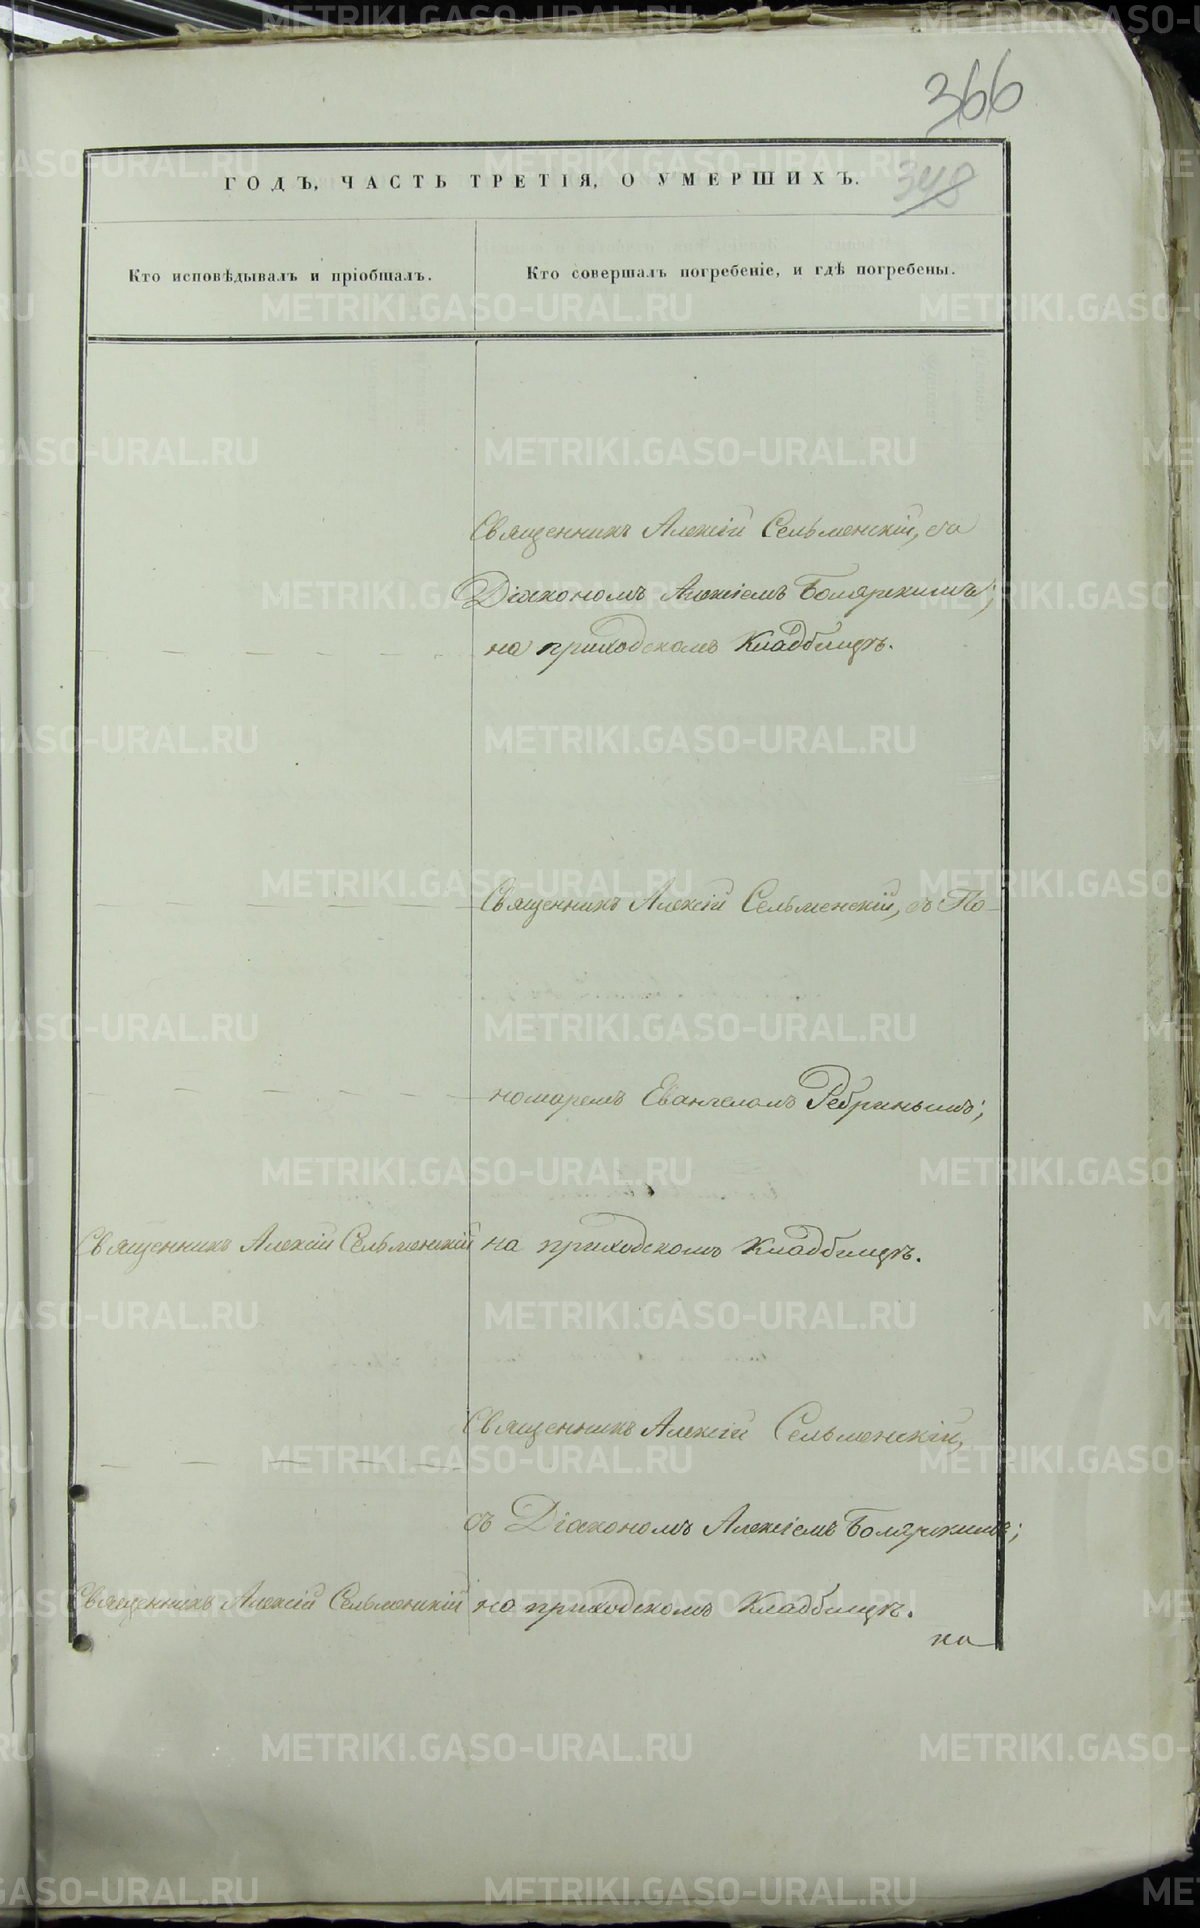 366
348
ГОДЪ, ЧАСТЬ ТРЕТІЯ, О УМЕРШИХЪ.
Кто исповѣдывалъ и пріобщалъ.
Кто совершалъ погребеніе, и гдѣ погребены.
Священникъ Алексій Сельменскій, съ
Діакономъ Алексіемъ Боляркимъ;
на приходскомъ Кладбищѣ.
Священникъ Алексій Сельменскій, съ По-
номаремъ Евангеломъ Ребринымъ;
Священникъ Алексій Сельменскій
на приходскомъ Кладбищѣ.
Священникъ Алексій Сельменскій,
съ Діакономъ Алексіемъ;
Священникъ Алексій Сельменскій
на приходскомъ Кладбищѣ.
METRIKI.GASO-URAL.RU